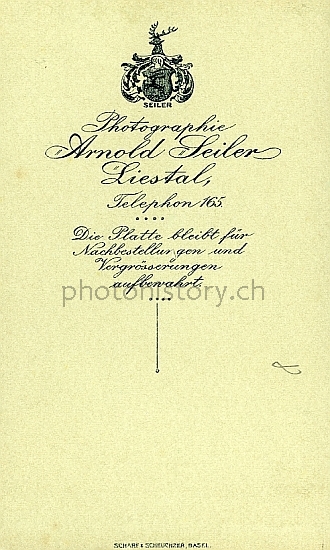 SEILER
Photographie
Arnold Seiler
Liestal,
Telephon 165
Die Platte bleibt für
Nachbestellungen und
Vergrösserungen
aufbewahrt.
photohistory.ch
SCHARF & SCHEUCHZER, BASEL.